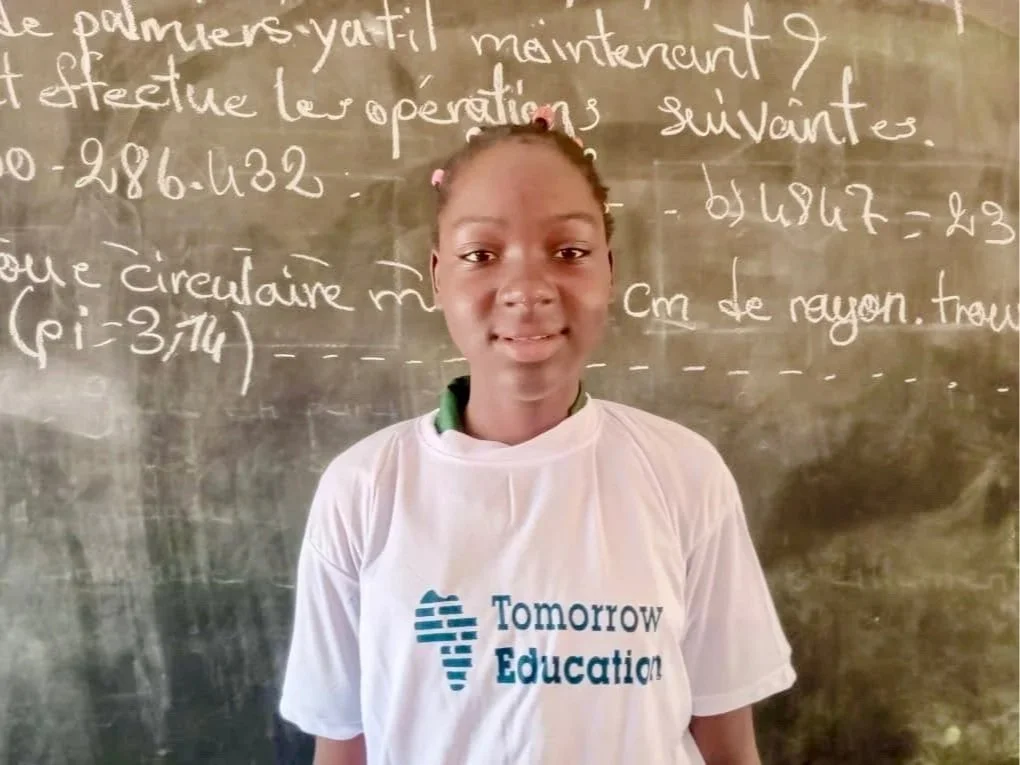 de palmiers-ya-t-il maintenant ?
t effectue les opérations suivantes.
0 - 286.432 : - - b) 4847 = 23
oue circulaire m cm de rayon. trou
(pi = 3,14) - - - - - - - - - - - - - - -
Tomorrow
Education